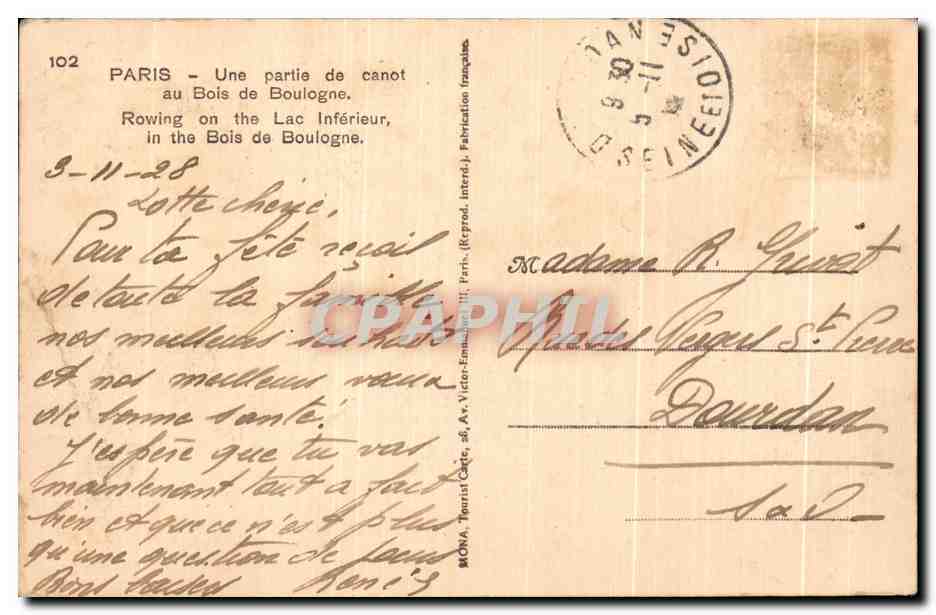 102
PARIS - Une partie de canot
au Bois de Boulogne.
Rowing on the Lac Inférieur,
in the Bois de Boulogne.
3-11-28
Lotte chérie,
Pour ta fête reçois
de toute la famille
nos meilleurs souhaits
et nos meilleurs vœux
de bonne santé.
J'espère que tu vas
maintenant tout a fait
bien et que ce n'est plus
qu'une question de jours
Bons baisers
MONA, Tourist Carte, 28, Av. Victor-Emmanuel III, Paris. (Reprod. interd.). Fabrication française.
9 30
5 -11
SEINE ET OISE
Madame R.
Rue des Vergers St Pierre
Dourdan
S & O
CPAPHIL